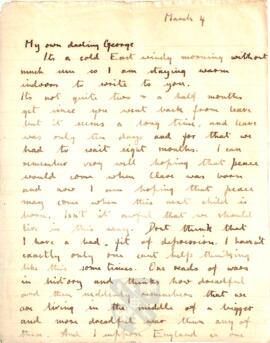 March 4
My own darling George
Its a cold East windy morning without
much sun so I am staying warm
indoors to write to you.
Its not quite two & a half months
yet since you went back from leave
but it seems a long time, and leave
was only ten days and for that we
had to wait eight months. I can
remember very well hoping that peace
would come when Clare was born
and now I am hoping that peace
may come when this next child is
born. Isn't it awful that we should
live in this way. Dont think that
I have a bad fit of depression. I haven't
exactly only one cant help thinking
like this some times. One reads of wars
in history and thinks how dreadful
and then suddenly remembers that we
are living in the middle of a bigger
and more dreadful war than any of
them. And I suppose England is one